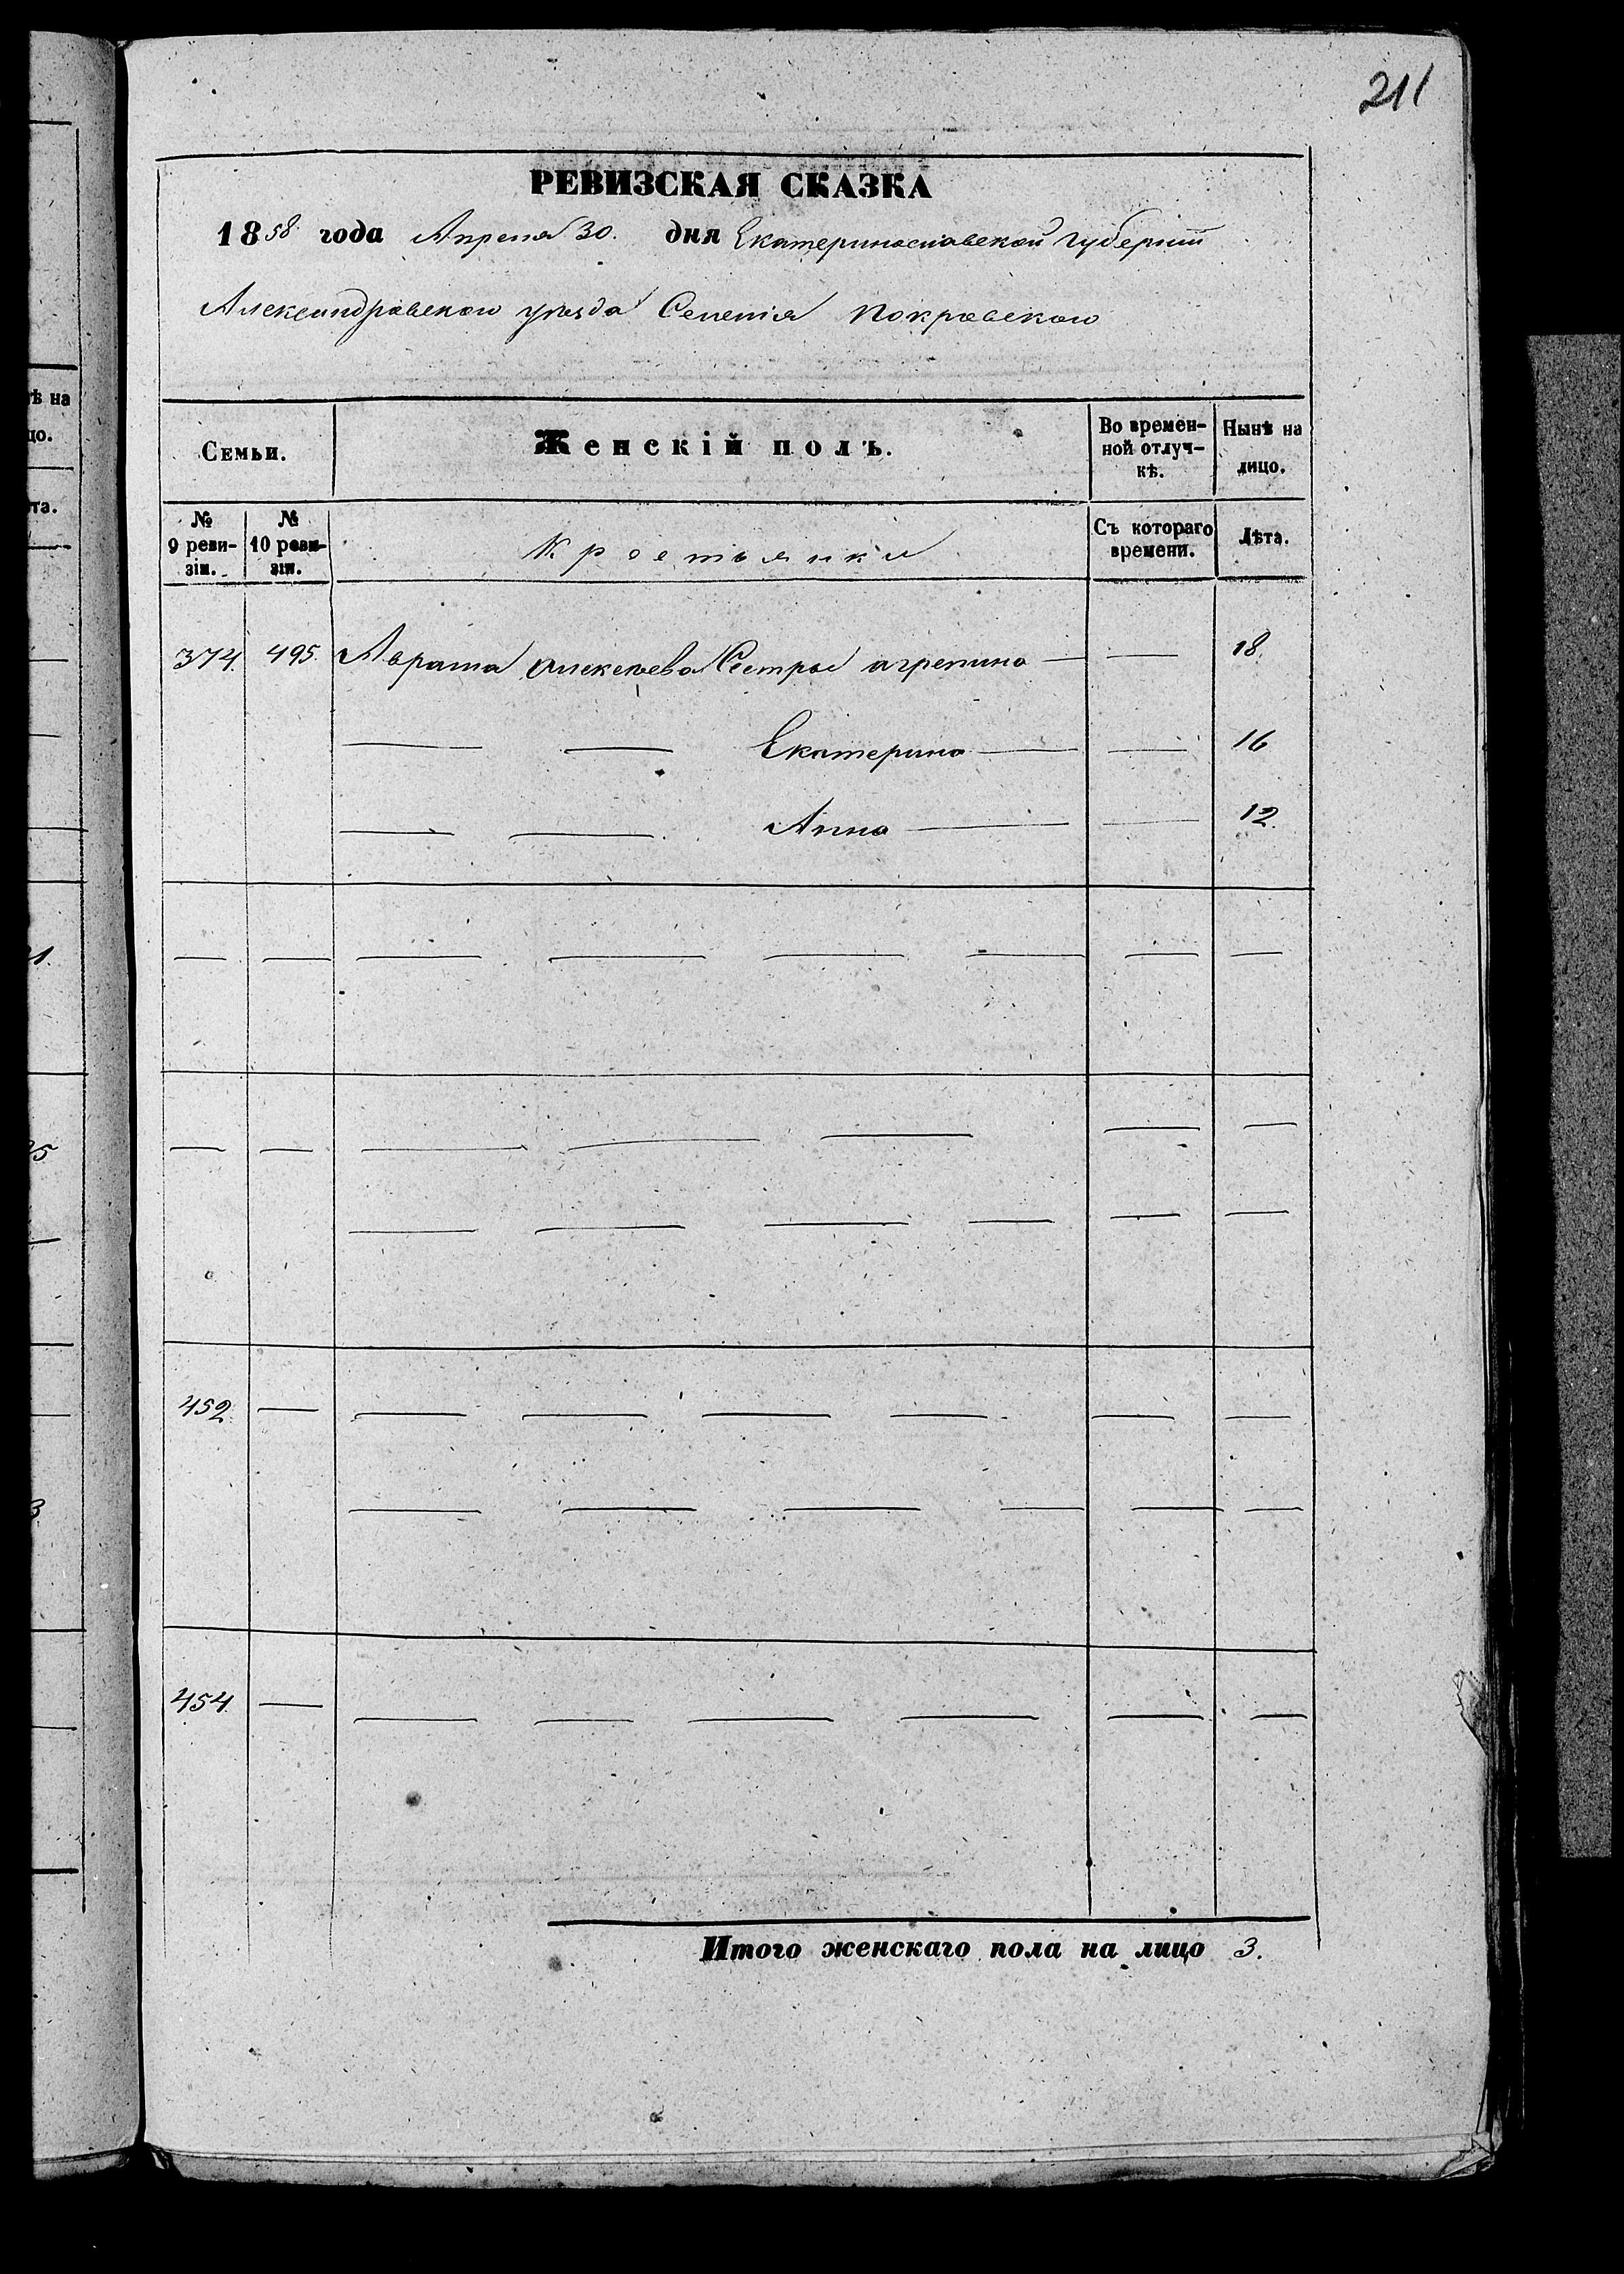 211
РЕВИЗСКАЯ СКАЗКА
1858 года Апреля 30. дня Екатеринославской Губерніи
Александровскаго уѣзда Селенія Покровскаго
Семьи.
Женскій полъ.
Во времен-
ной отлуч-
кѣ.
Нынѣ на
лицо.
№
9 реви-
зіи.
№
10 реви-
зіи.
Крестьянки
Съ котораго
времени.
Лѣта.
374. 495. Алексѣева Сестры агрепина — — 18.
— — Екатерина — — 16
— — Анна — — 12.
— — — — — — — —
— — — — — — —
— — — — — —
452. — — — — — — —
— — — — — —
454. — — — — — — —
Итого женскаго пола на лицо 3.
ѣ на
цо.
та.
1.
5
3